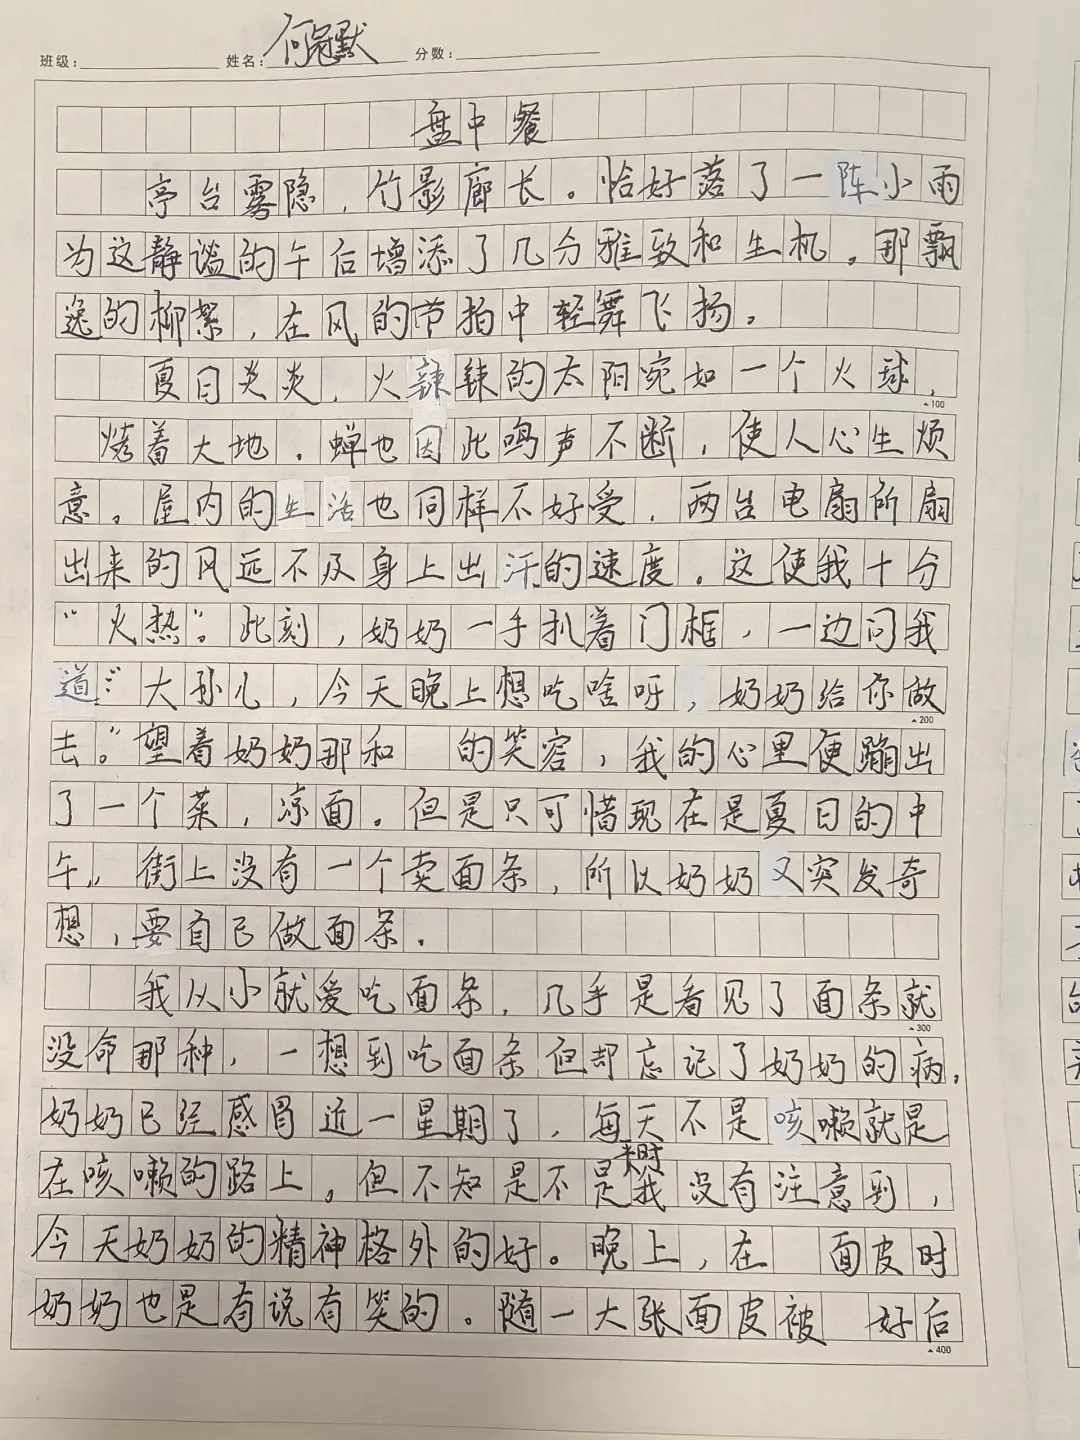 班级： 姓名：何冠默 分数：
盘中餐
亭台雾隐，竹影廊长。恰好落了一阵小雨
为这静谧的午后增添了几分雅致和生机。那飘
逸的柳絮，在风的节拍中轻舞飞扬。
夏日炎炎，火辣辣的太阳宛如一个火球，
100
烤着大地。蝉也因此鸣声不断，使人心生烦
意。屋内的生活也同样不好受，两台电扇所扇
出来的风远不及身上出汗的速度。这使我十分
“火热”。此刻，奶奶一手扒着门框，一边问我
道：“大孙儿，今天晚上想吃啥呀，奶奶给你做
200
去。”望着奶奶那和 的笑容，我的心里便蹦出
了一个菜，凉面。但是只可惜现在是夏日的中
午，街上没有一个卖面条，所以奶奶又突发奇
想，要自己做面条。
我从小就爱吃面条，几乎是看见了面条就
300
没命那种，一想到吃面条但却忘记了奶奶的病，
奶奶已经感冒近一星期了，每天不是咳嗽就是
在咳嗽的路上。但不知是不是我没有注意到，
今天奶奶的精神格外的好。晚上，在 面皮时
奶奶也是有说有笑的。随一大张面皮被 好后
400